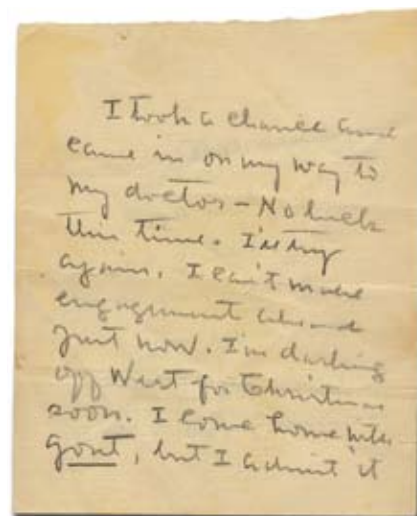 I took a chance and
came in on my way to
my doctor – No luck
this time. I'll try
again. I can't make
engagement ahead
just now. I'm dashing
off West for Christmas
soon. I come home with
gout, but I admit it